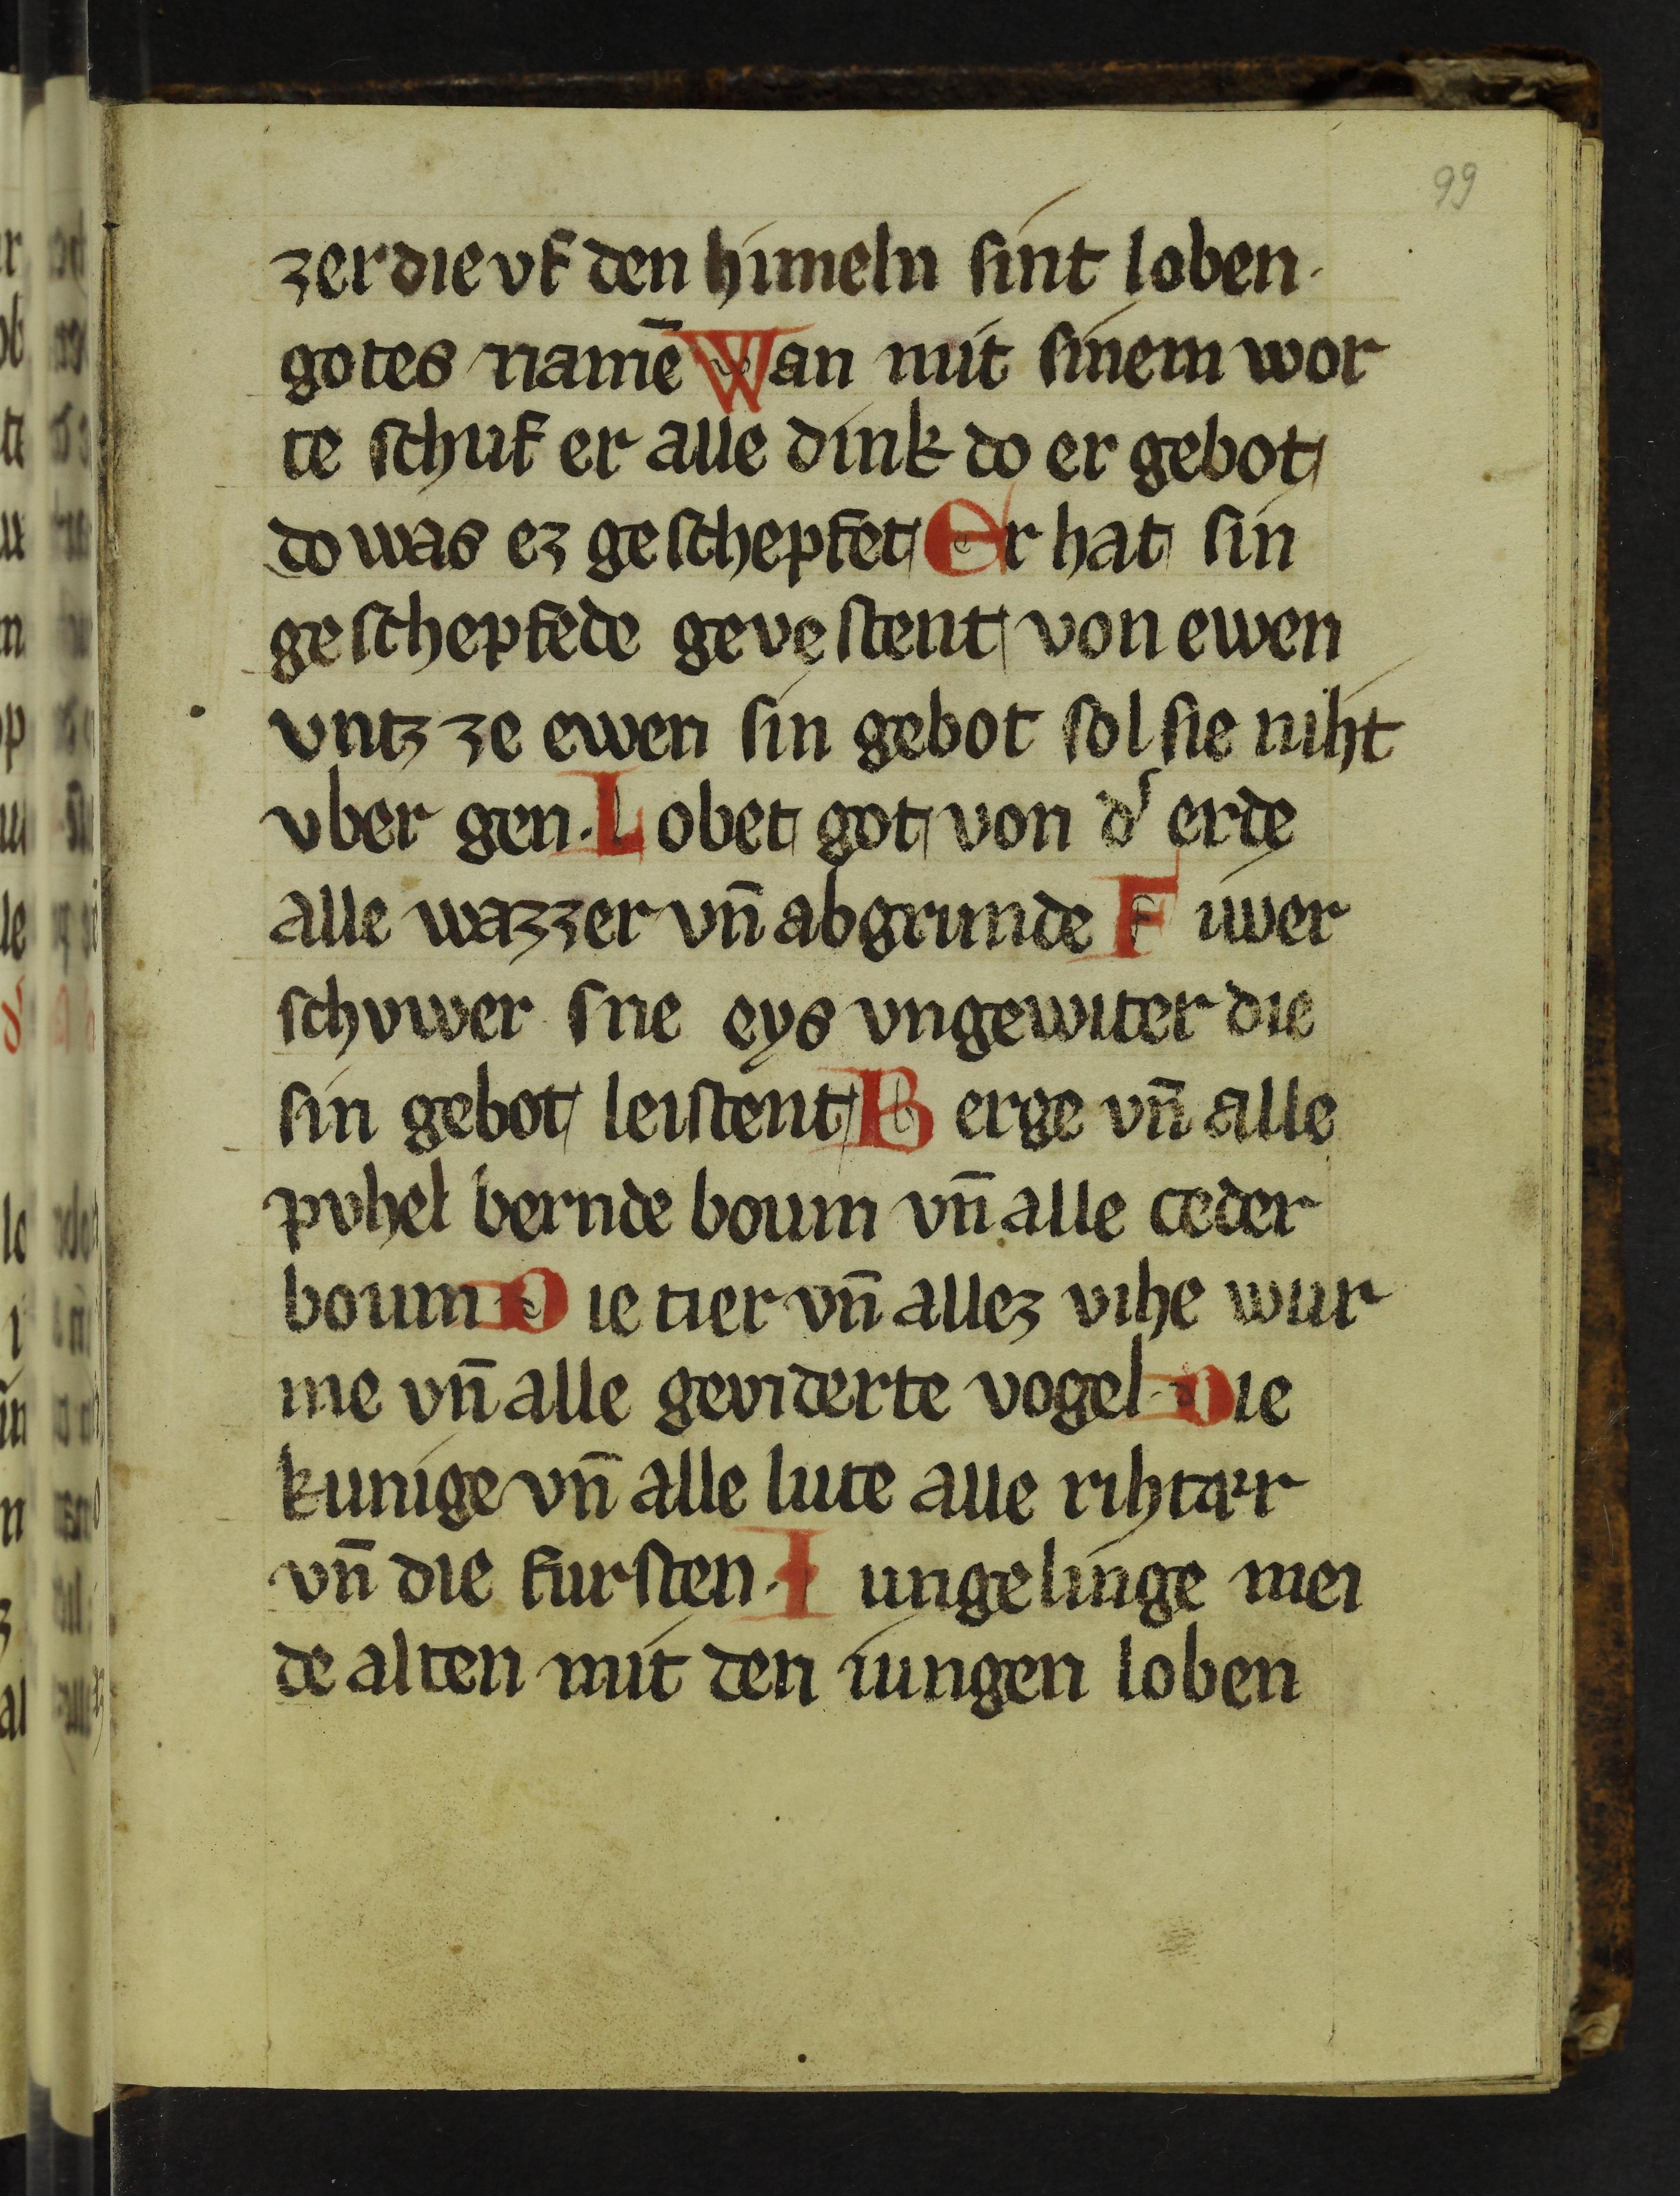 99
zer die vf den himeln sint loben·
gotes namē Wan mit sinem wor
te schuf er alle dink do er gebot
do was ez geschepfet Er hat sin
geschepfede gevestent von ewen
vntz ze ewen sin gebot sol sie niht
vber gen· Lobet got von d' erde
alle wazzer vn̄ abgrunde Fiwer
schvwer sne eys vngewiter die
sin gebot leistent Berge vn̄ alle
pvhel bernde boum vn̄ alle ceder
boum Die tier vn̄ allez vihe wur
me vn̄ alle geviderte vogel· Die
kunige vn̄ alle lute alle rihtær
vn̄ die fursten· Iungelinge mei
de alten mit den iungen loben